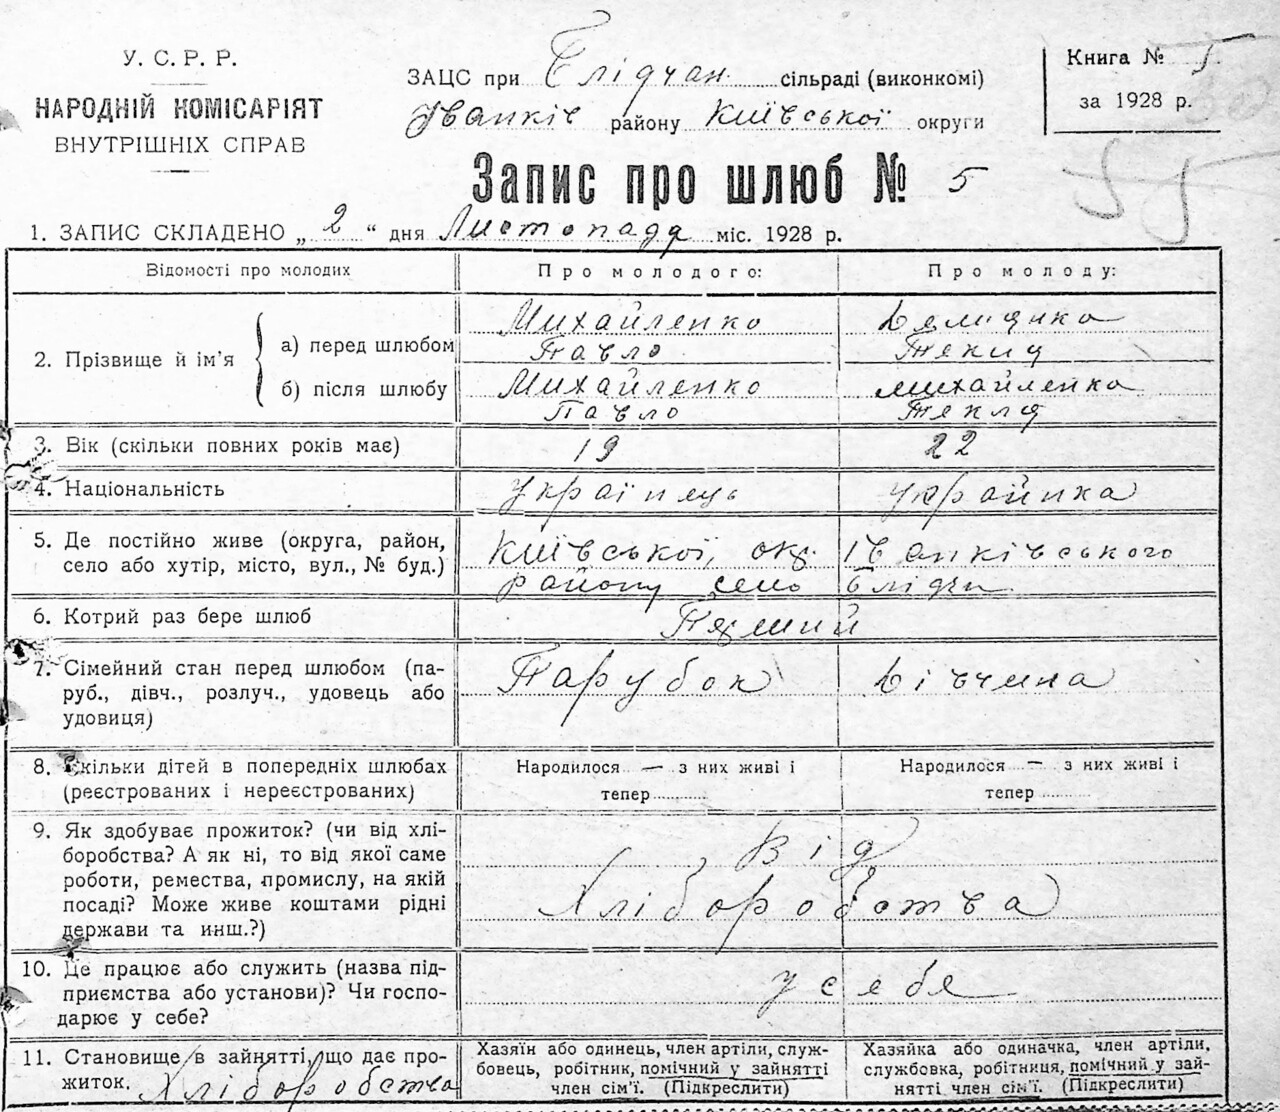 У. С. Р. Р.
НАРОДНІЙ КОМІСАРІЯТ
ВНУТРІШНІХ СПРАВ
ЗАЦС при Блідчан. сільраді (виконкомі)
Іванків району Київської округи
Книга №
за 1928 р.
Запис про шлюб № 5
1. ЗАПИС СКЛАДЕНО „2“ дня Листопада міс. 1928 р.
Відомості про молодих
Про молодого:
Про молоду:
2. Прізвище й ім'я
а) перед шлюбом
Михайленко
Павло
б) після шлюбу
Михайленко
Михайленко
Павло
Текля
3. Вік (скільки повних років має)
19
22
4. Національність
Українець
Українка
5. Де постійно живе (округа, район,
село або хутір, місто, вул., № буд.)
Київської, окр. Іванківського
району село Блідчи
6. Котрий раз бере шлюб
7. Сімейний стан перед шлюбом (па-
руб., дівч., розлуч., удовець або
удовиця)
Парубок
Дівчина
8. Скільки дітей в попередніх шлюбах
(реєстрованих і нереєстрованих)
Народилося — з них живі і
тепер
Народилося — з них живі і
тепер
9. Як здобуває прожиток? (чи від хлі-
боробства? А як ні, то від якої саме
роботи, ремества, промислу, на якій
посаді? Може живе коштами рідні
держави та инш.?)
Від
Хліборобства
10. Це працює або служить (назва під-
приємства або установи)? Чи госпо-
дарює у себе?
у себе
11. Становище в зайнятті, що дає про-
житок. Хліборобства
Хазяїн або одинець, член артіли, служ-
бовець, робітник, помічний у зайнятті
член сім'ї. (Підкреслити)
Хазяйка або одиначка, член артіли,
службовка, робітниця, помічний у зай-
нятті член сім'ї. (Підкреслити)